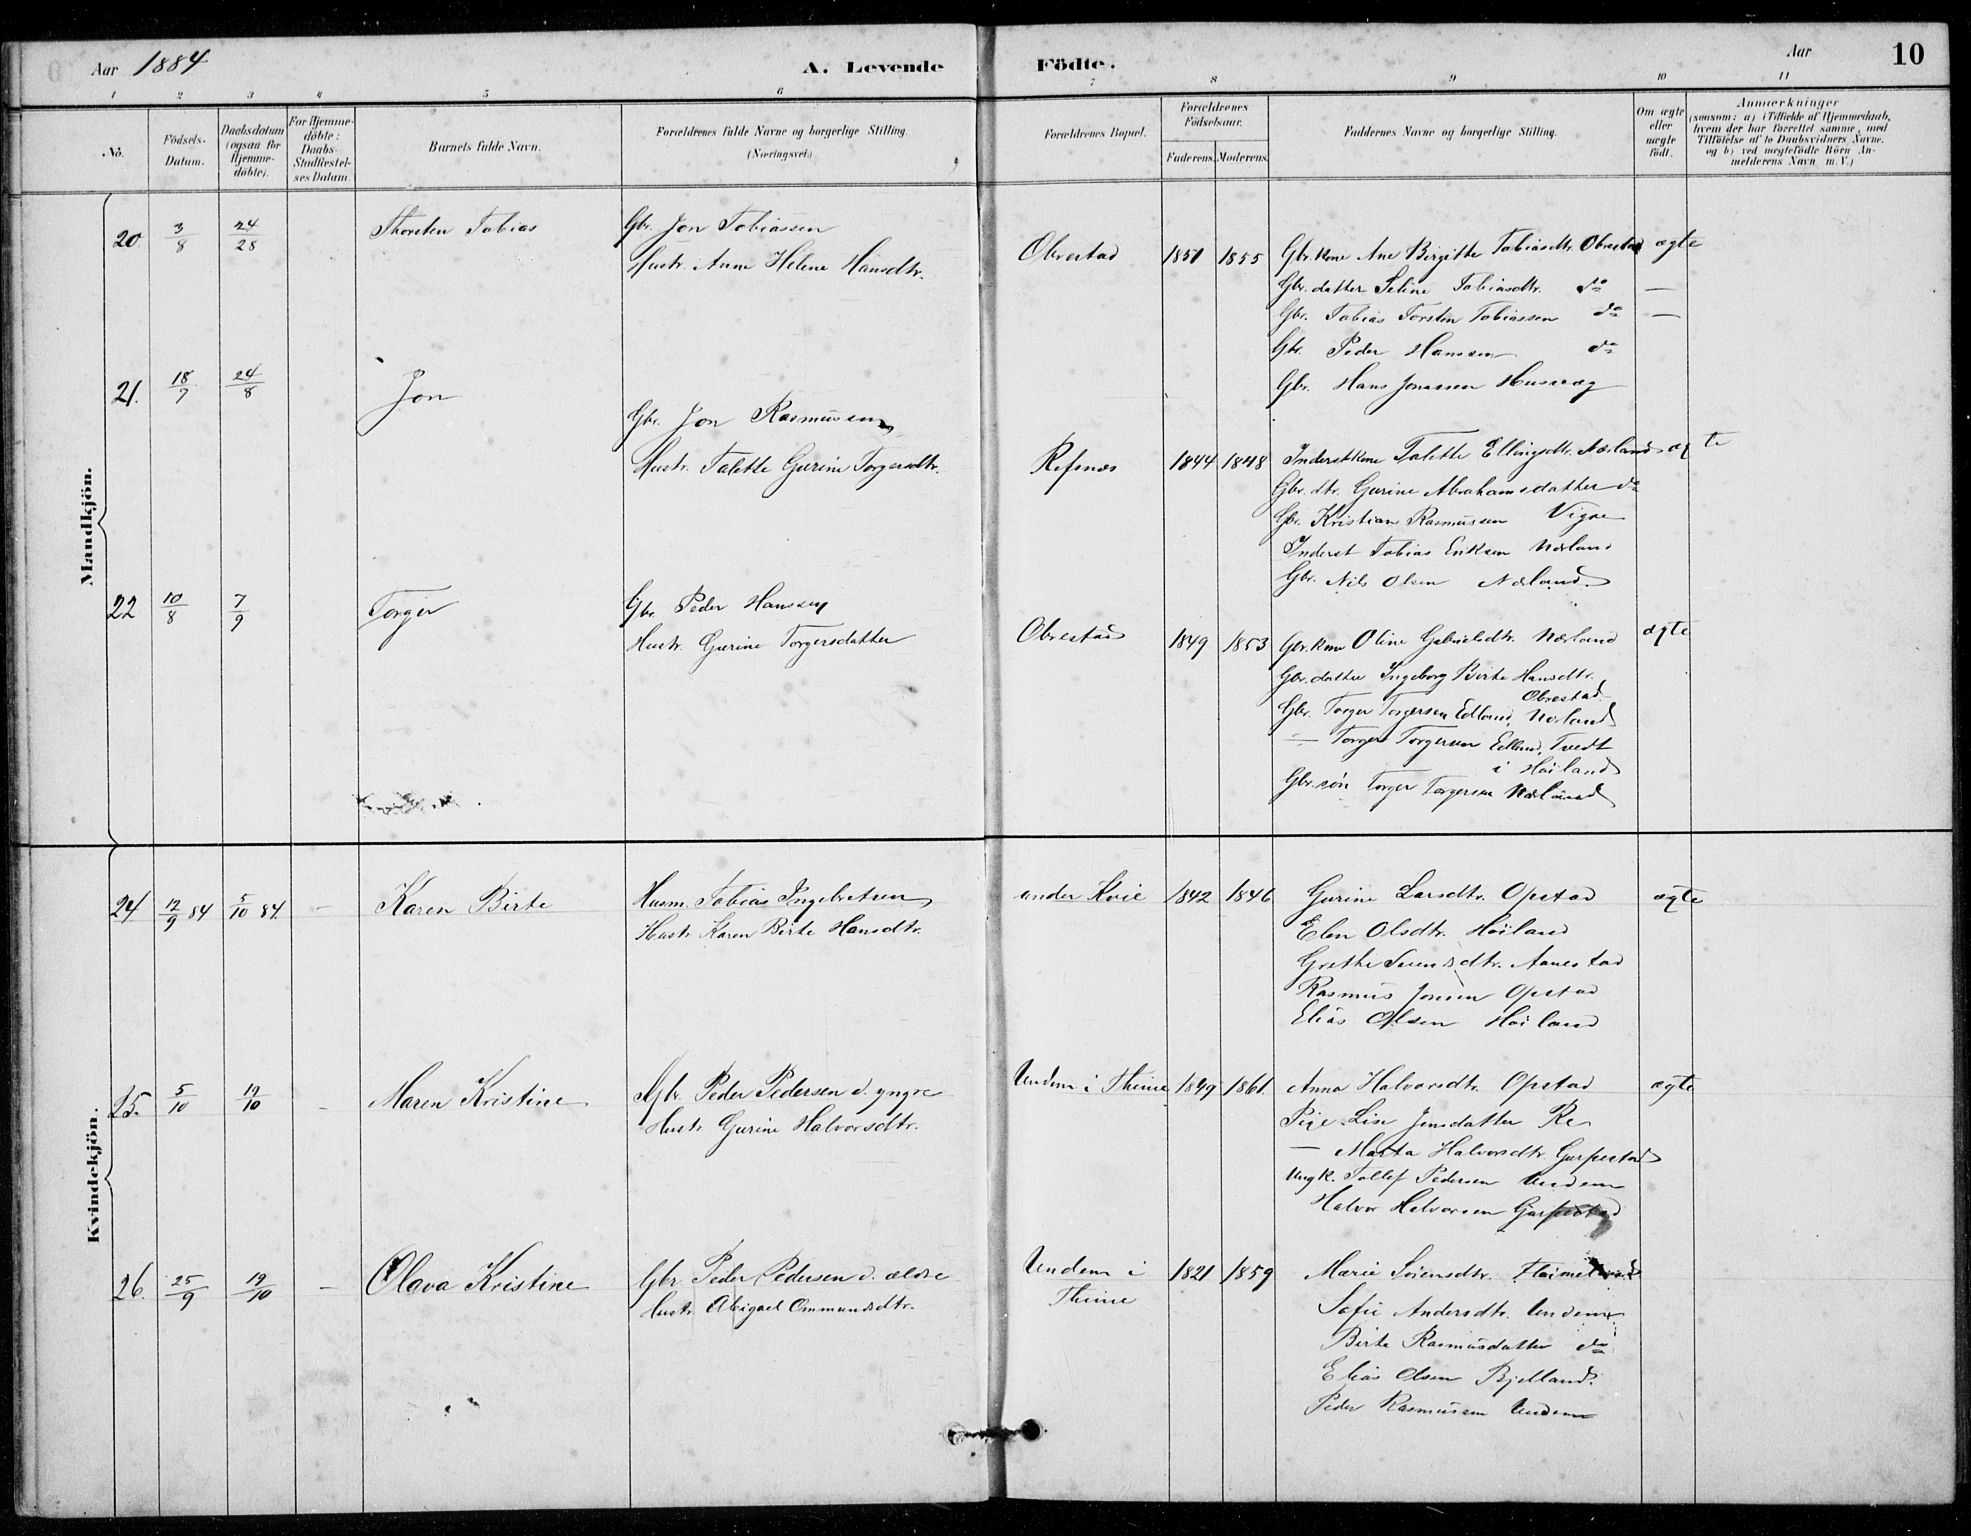 Aar 1884
A. Levende
Födte.
Aar
10
1 2 3 4 5 6 7 8 9 10 11
No.
Födsels-Datum.
Daabsdatum (ogsaa for Hjemme-döbte).
For Hjemme-döbte: Daabs-Stadfæstel-ses Datum.
Barnets fulde Navn.
Forældrenes fulde Navne og borgerlige Stilling. (Næringsvei.)
Forældrenes Bopæl.
Forældrenes Födselsaar.
Faderens. Moderens.
Faddernes Navne og borgerlige Stilling.
Om ægte eller uægte födt.
Anmærkninger
(saasom: a) i Tilfælde af Hjemmedaab, hvem der har forrettet samme, med Tilföielse af to Daabsvidners Navne, og b) ved uægtefödte Börn An-melderens Navn m. V.)
Mandkjön.
20 3/8 24/28 Thorsten Tobias
Gbr. Jon Tobiassen
Hustr. Anne Helene Hansdtr.
Obrestad 1851 1855
Gbr. kone Ane Birgitte Tobiasdtr. Obrestad ægte
Gbr. datter Seline Tobiasdtr. do —
Gbr. Tobias Torsten Tobiassen do —
Gbr. Peder Hanssen do
Gbr. Hans Jonassen
21. 18/7 24/8 Jon
Gbr. Jon Rasmussen
Hustr. Talette Gurine Torgersdtr.
Refsnæs 1844 1848
Inderstkone Talette Ellingsdtr. Nærland ægte
Gbr. dtr. Gurine Abrahamsdatter do
Gbr. Kristian Rasmussen Vigre
Inderst Tobias Eriksen Nærland
Gbr. Nils Olsen Nærland
22 10/8 7/9 Torger
Gbr. Peder Hanssen
Hustr. Gurine Torgersdatter
Obrestad 1849 1853
Gbr. kone Oline Gabrielsdtr. Nærland ægte
Gbr. datter Ingeborg Birte Hansdtr.
Obrestad
Gbr. Torger Torgersen Edland, Nærland
— Torger Torgersen Edland, Tvedt
i Höiland
Gbr. sön Torger Torgersen Nærland
Kvindekjön.
24 12/9 84 5/10 84. — Karen Birte
Husm. Tobias Ingebretsen
Hustr. Karen Birte Hansdtr.
under Kvie 1842 1846
Gurine Larsdtr. Opstad ægte
Elen Olsdtr. Höiland
Grethe Svendsdtr. Aanestad
Rasmus Jonsen Opstad
Elias Olsen Höiland
25. 5/10 19/10 — Maren Kristine
Gbr. Peder Pedersen d. yngre
Hustr. Gurine Halvorsdtr.
Undem i Thime 1849 1861.
Anna Halvorsdtr. Opstad ægte
Pige Lise Jensdatter Re
— Marta Halvorsdtr. Garpestad
Ungk. Tollef Pedersen Undem
Halvor Halvorsen Garpestad
26. 25/9 19/10 — Olava Kristine
Gbr. Peder Pedersen d. ældre
Hustr. Abigael Ommundsdtr.
Undem i
Thime 1821 1859
Marie Sörensdtr.
Sofie Andersdtr. Undem
Birte Rasmusdatter do
Elias Olsen Bjelland.
Peder Rasmussen Undem